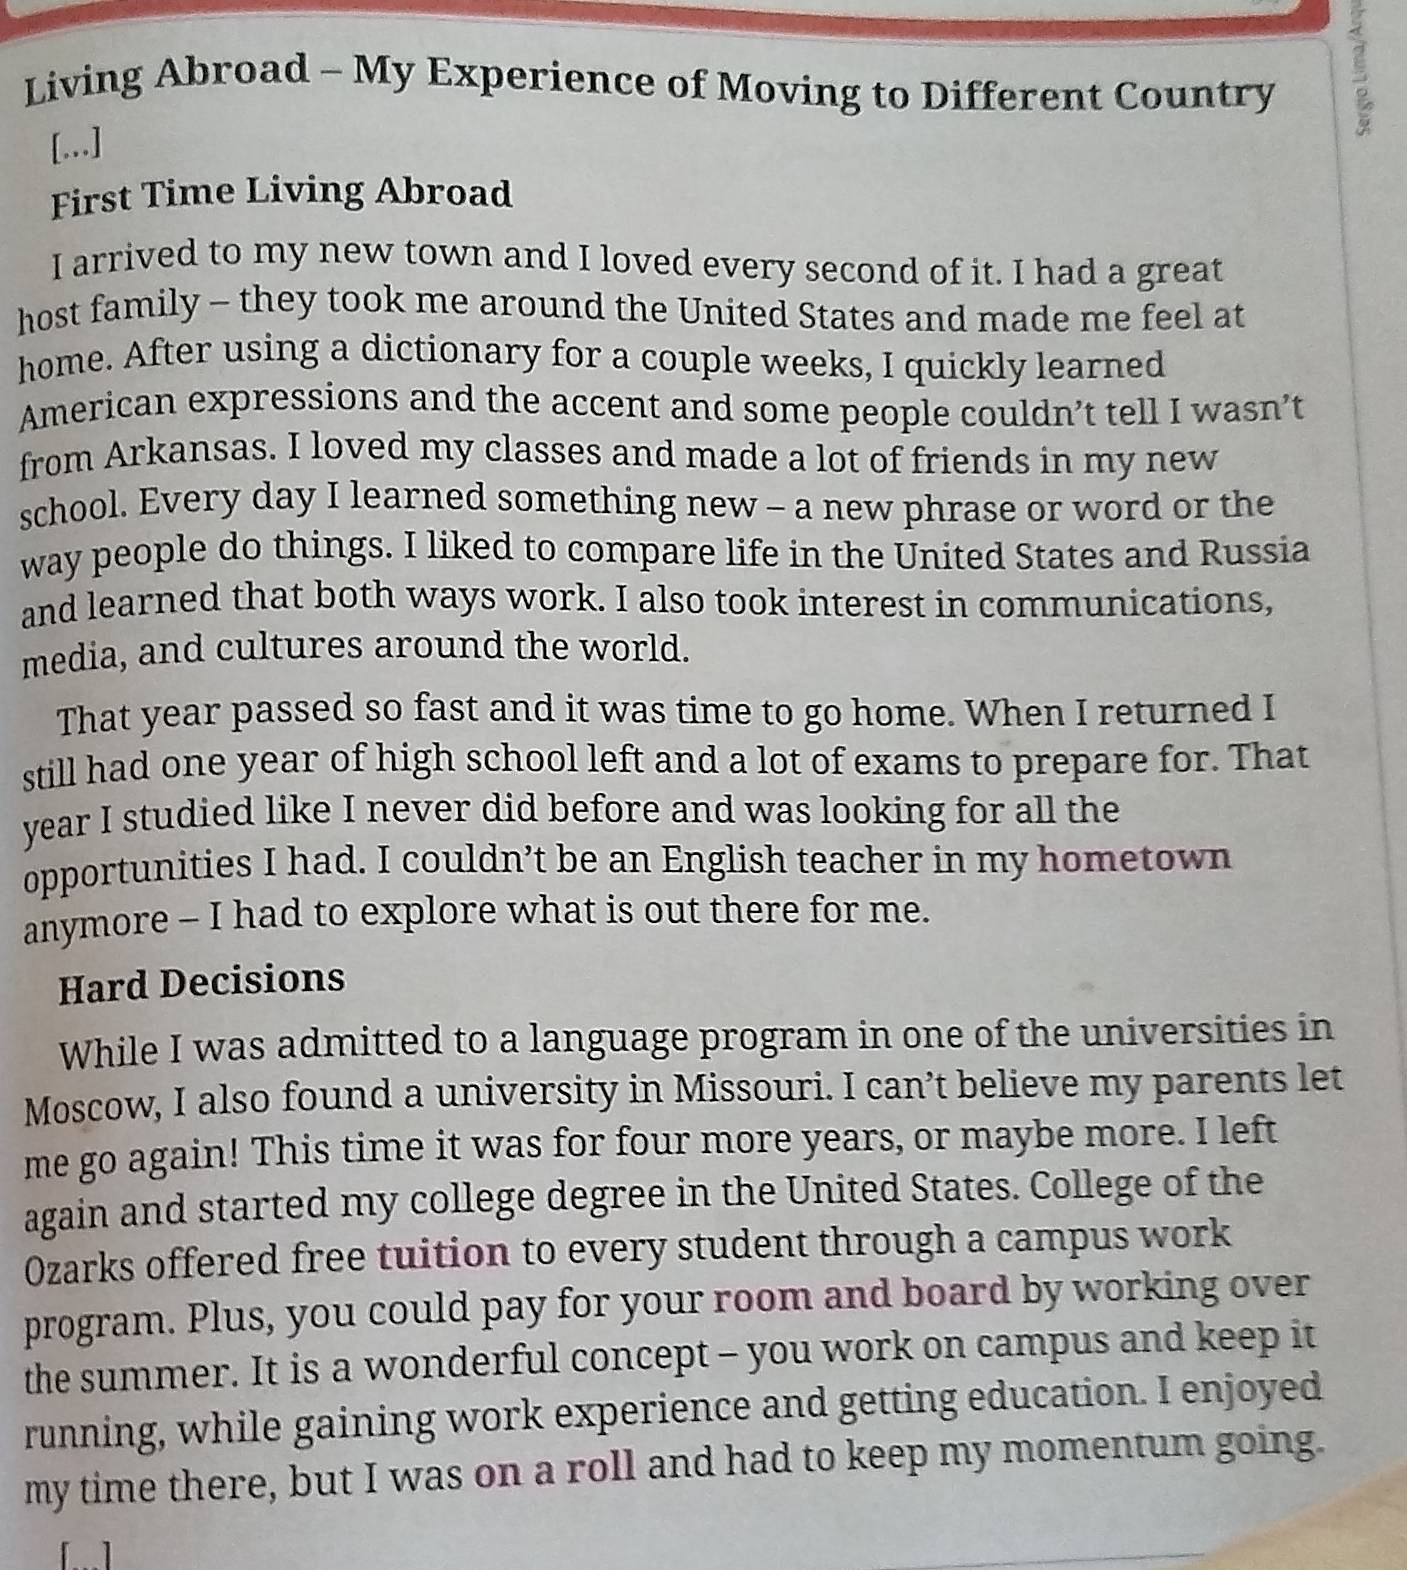 Living Abroad – My Experience of Moving to Different Country
[...]
First Time Living Abroad
I arrived to my new town and I loved every second of it. I had a great
host family – they took me around the United States and made me feel at
home. After using a dictionary for a couple weeks, I quickly learned
American expressions and the accent and some people couldn't tell I wasn't
from Arkansas. I loved my classes and made a lot of friends in my new
school. Every day I learned something new – a new phrase or word or the
way people do things. I liked to compare life in the United States and Russia
and learned that both ways work. I also took interest in communications,
media, and cultures around the world.
That year passed so fast and it was time to go home. When I returned I
still had one year of high school left and a lot of exams to prepare for. That
year I studied like I never did before and was looking for all the
opportunities I had. I couldn't be an English teacher in my hometown
anymore – I had to explore what is out there for me.
Hard Decisions
While I was admitted to a language program in one of the universities in
Moscow, I also found a university in Missouri. I can't believe my parents let
me go again! This time it was for four more years, or maybe more. I left
again and started my college degree in the United States. College of the
Ozarks offered free tuition to every student through a campus work
program. Plus, you could pay for your room and board by working over
the summer. It is a wonderful concept – you work on campus and keep it
running, while gaining work experience and getting education. I enjoyed
my time there, but I was on a roll and had to keep my momentum going.
[...]
Sergio Lima/